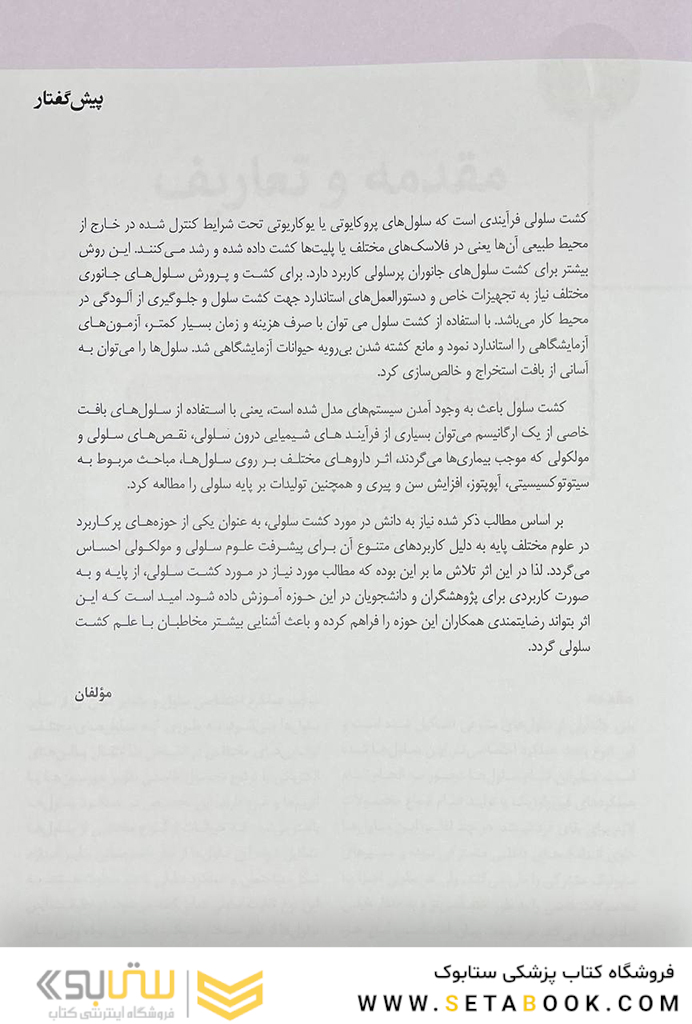 پیش‌گفتار
مقدمه و تعاریف
کشت سلولی فرآیندی است که سلول‌های پروکایوتی یا یوکاریوتی تحت شرایط کنترل شده در خارج از
محیط طبیعی آن‌ها یعنی در فلاسک‌های مختلف یا پلیت‌ها کشت داده شده و رشد می‌کنند. این روش
بیشتر برای کشت سلول‌های جانوران پرسلولی کاربرد دارد. برای کشت و پرورش سلول‌های جانوری
مختلف نیاز به تجهیزات خاص و دستورالعمل‌های استاندارد جهت کشت سلول و جلوگیری از آلودگی در
محیط کار می‌باشد. با استفاده از کشت سلول می توان با صرف هزینه و زمان بسیار کمتر، آزمون‌های
آزمایشگاهی را استاندارد نمود و مانع کشته شدن بی‌رویه حیوانات آزمایشگاهی شد. سلول‌ها را می‌توان به
آسانی از بافت استخراج و خالص‌سازی کرد.
کشت سلول باعث به وجود آمدن سیستم‌های مدل شده است، یعنی با استفاده از سلول‌های بافت
خاصی از یک ارگانیسم می‌توان بسیاری از فرآیند های شیمیایی درون سلولی، نقص‌های سلولی و
مولکولی که موجب بیماری‌ها می‌گردند، اثر داروهای مختلف بر روی سلول‌ها، مباحث مربوط به
سیتوتوکسیسیتی، آپوپتوز، افزایش سن و پیری و همچنین تولیدات بر پایه سلولی را مطالعه کرد.
بر اساس مطالب ذکر شده نیاز به دانش در مورد کشت سلولی، به عنوان یکی از حوزه‌های پرکاربرد
در علوم مختلف پایه به دلیل کاربردهای متنوع آن برای پیشرفت علوم سلولی و مولکولی احساس
می‌گردد. لذا در این اثر تلاش ما بر این بوده که مطالب مورد نیاز در مورد کشت سلولی، از پایه و به
صورت کاربردی برای پژوهشگران و دانشجویان در این حوزه آموزش داده شود. امید است که این
اثر بتواند رضایتمندی همکاران این حوزه را فراهم کرده و باعث آشنایی بیشتر مخاطبان با علم کشت
سلولی گردد.
مؤلفان
فروشگاه کتاب پزشکی ستابوک
WWW.SETABOOK.COM
ستابوک
فروشگاه اینترنتی کتاب